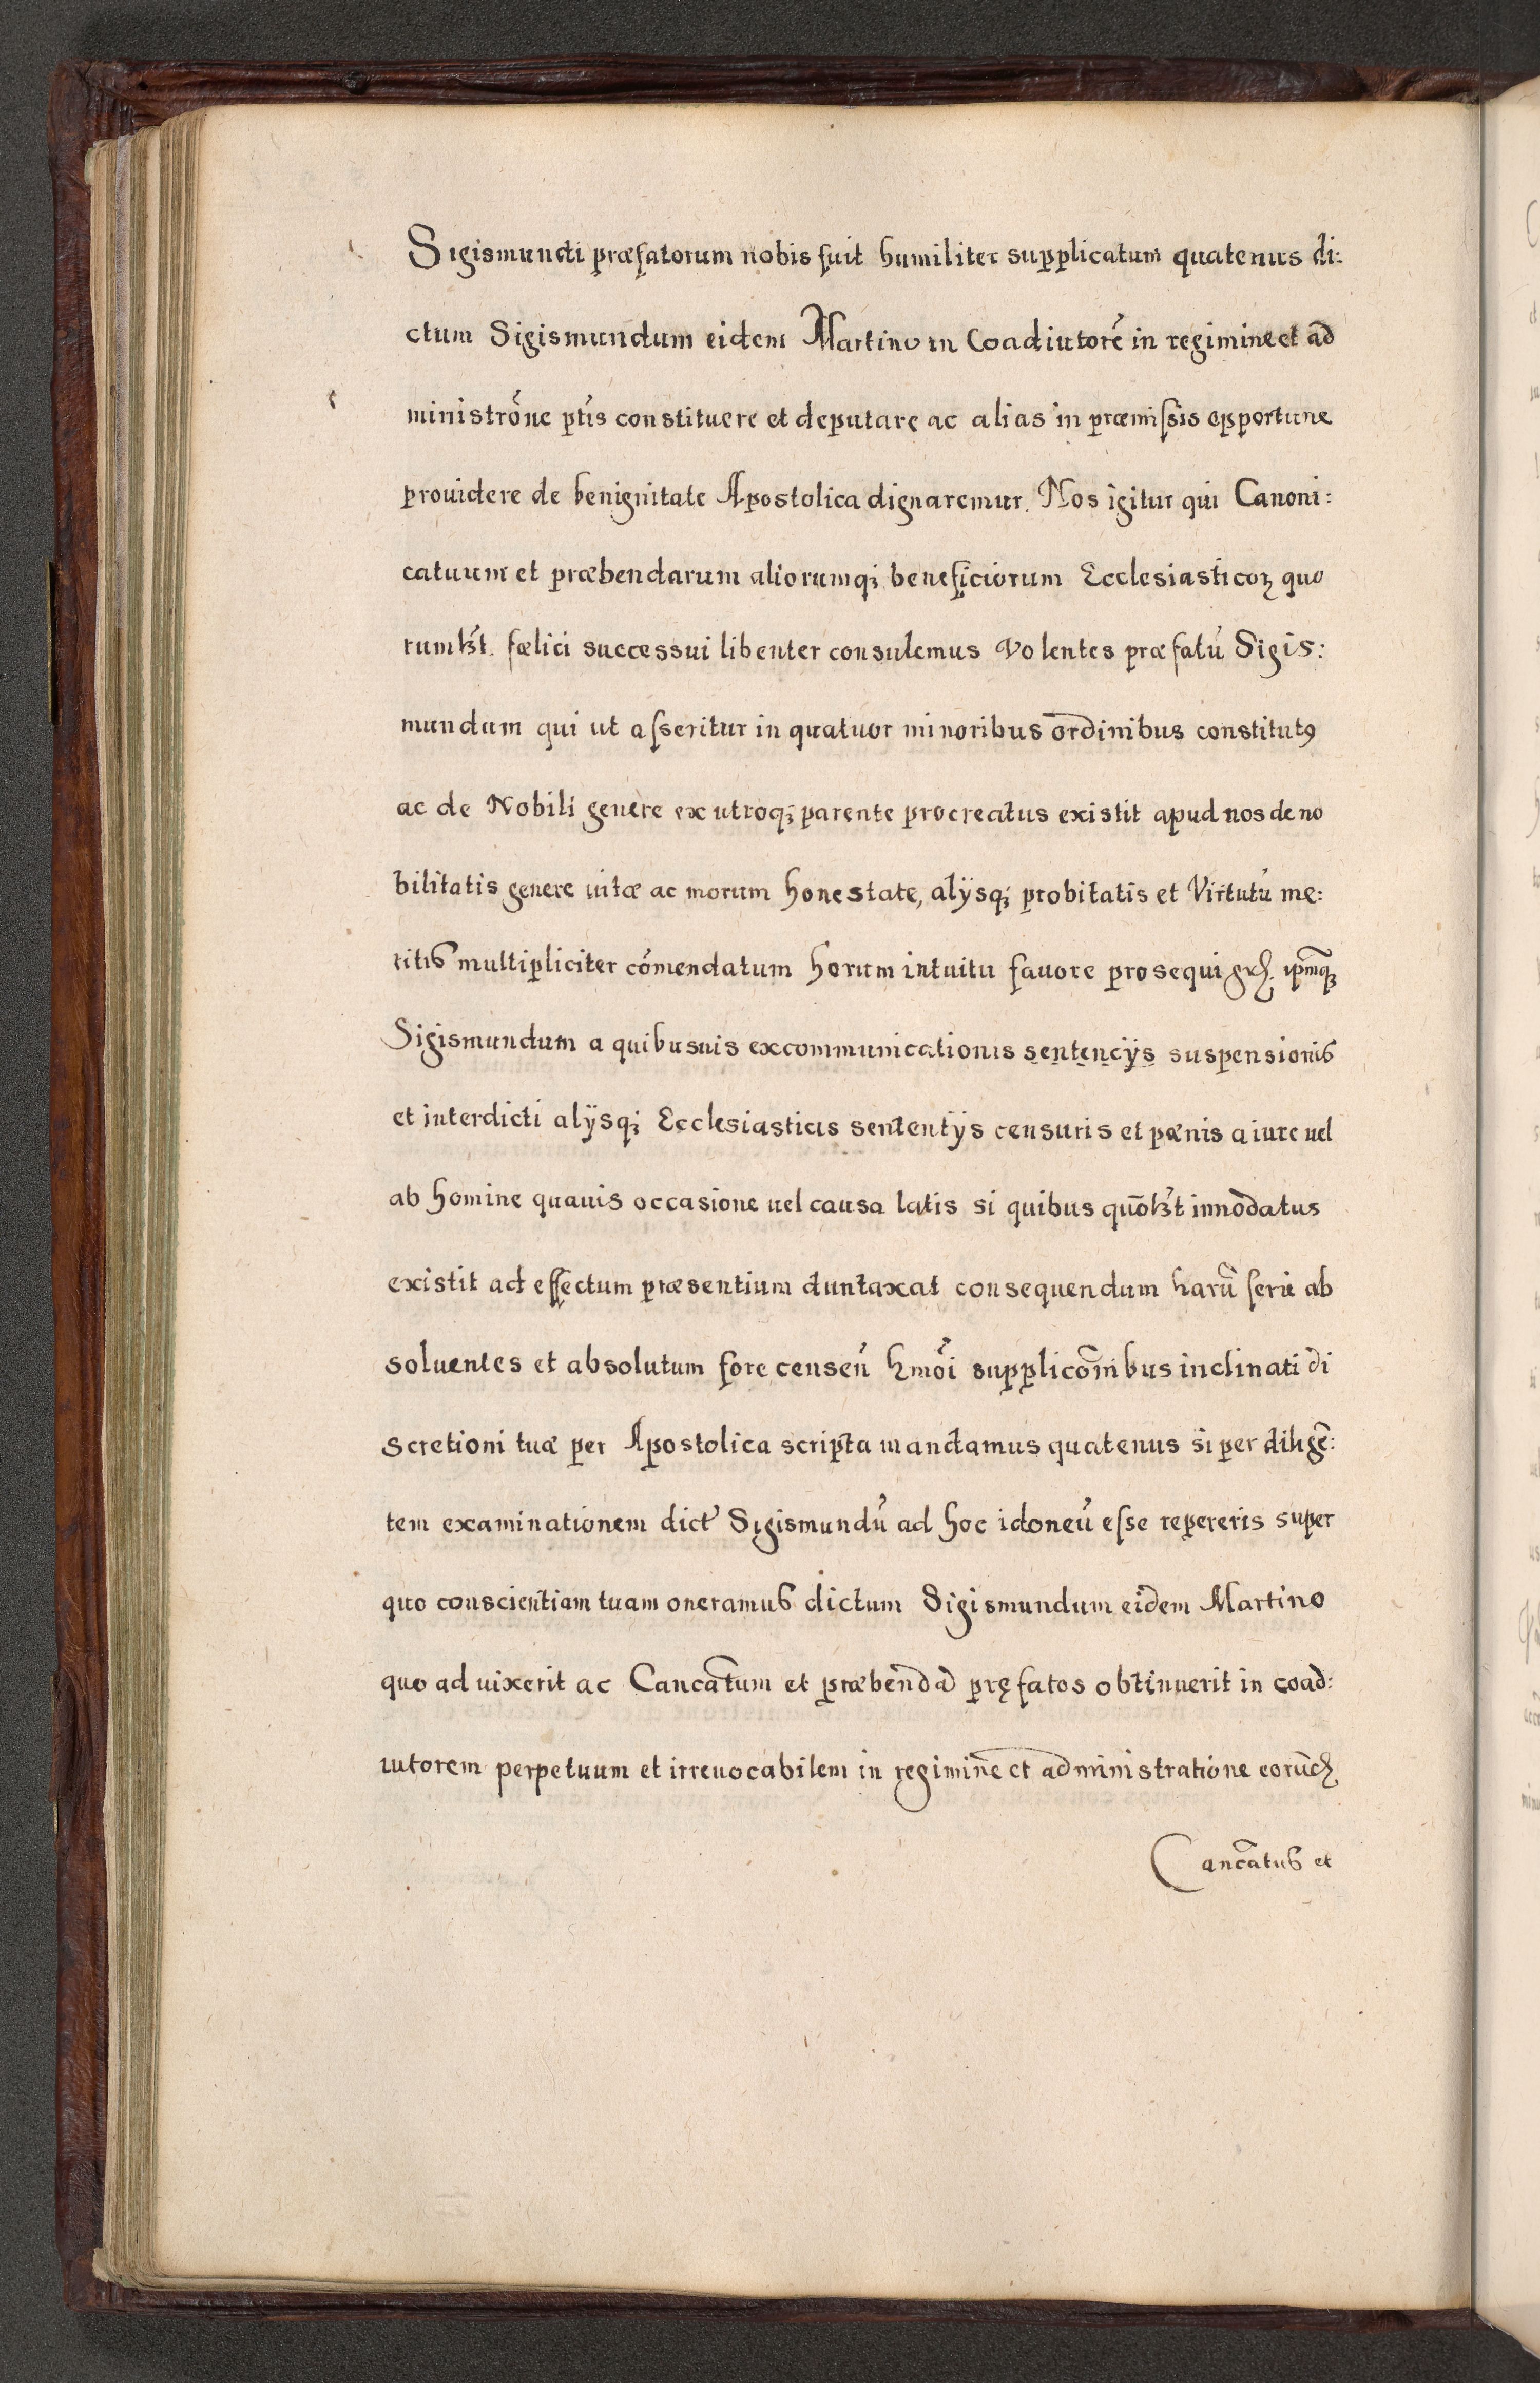 Sigismundi præfatorum nobis fuit humiliter supplicatum quatenus di:
ctum Sigismundum eidem Martino in Coadiutorē in regimine et ad
ministrōne ptīs constituere et deputare ac alias in præmissis opportune
prouidere de benignitate Apostolica dignaremur. Nos igitur qui Canoni:
catuum et præbendarum aliorumq; beneficiorum Ecclesiasticoꝝ quo
rumlꝫt. fœlici successui libenter consulemus Volentes præfatū Sigis:
mundum qui ut asseritur in quatuor minoribus ordinibus constitutꝰ
ac de Nobili genere ex utroq; parente procreatus existit apud nos de no
bilitatis genere uitæ ac morum honestate, alÿsq; probitatis et Virtutū me:
ritis multipliciter cōmendatum horum intuitu fauore prosequi ipmq̃ꝫ
Sigismundum a quibusuis excommunicationis sentencÿs suspensionis
et interdicti alÿsq; Ecclesiasticis sententÿs censuris et pœnis a iure uel
ab homine quauis occasione uel causa latis si quibus quōlꝫt innodatus
existit ad effectum præsentium duntaxat consequendum harū serie ab
soluentes et absolutum fore censeñ hmōi supplicōnibus inclinati di
scretioni tuæ per Apostolica scripta mandamus quatenus si per diligē:
tem examinationem dict̃ Sigismundū ad hoc idoneū esse repereris super
quo conscientiam tuam oneramus dictum Sigismundum eidem Martino
quo ad uixerit ac Cancatum et præbendā pręfatos obtinuerit in coad:
iutorem perpetuum et irreuocabilem in regimine et administratione eorūd̃
Cancatus et